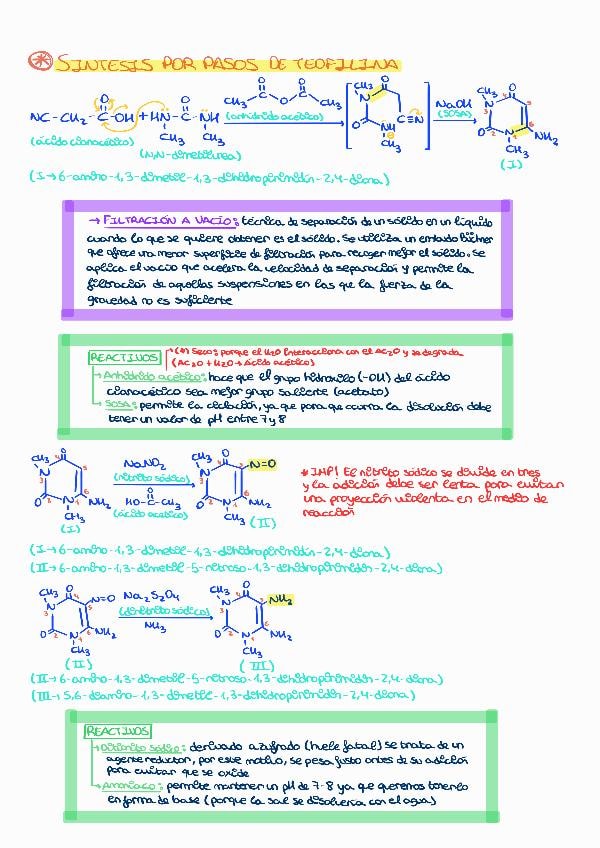 SINTESIS POR PASOS DE TEOFILINA
NC-CH2-C-OH + HN-C-NH
CH3 CH3
(ácido cianoacético)
(N,N-dimetilurea)
(anhídrido acético)
NaOH
(SOSA)
(I)
(I → 6-amino-1,3-dimetil-1,3-dihidropirimidín-2,4-diona)
→ FILTRACIÓN A VACÍO: técnica de separación de un sólido en un líquido
cuando lo que se quiere obtener es el sólido. Se utiliza un embudo Büchner
que ofrece una menor superficie de filtración para recoger mejor el sólido. Se
aplica el vacío que acelera la velocidad de separación y permite la
filtración de aquellas suspensiones en las que la fuerza de la
gravedad no es suficiente
REACTIVOS
(*) Seco: porque el H2O interacciona con el Ac2O y se degrada
(Ac2O + H2O → Ácido acético)
→ Anhídrido acético: hace que el grupo hidroxilo (-OH) del ácido
cianoacético sea mejor grupo saliente (acetato)
→ SOSA: permite la ciclación, ya que para que ocurra la disolución debe
tener un valor de pH entre 7 y 8
NaNO2
(nitrito sódico)
(ácido acético)
N=O
NH2
(I)
(II)
* IMP! El nitrito sódico se divide en tres
y la adición debe ser lenta para evitar
una proyección violenta en el medio de
reacción
(I → 6-amino-1,3-dimetil-1,3-dihidropirimidín-2,4-diona)
(II → 6-amino-1,3-dimetil-5-nitroso-1,3-dihidropirimidín-2,4-diona)
Na2S2O4
(ditionito sódico)
NH3
NH2
(II)
(III)
(II → 6-amino-1,3-dimetil-5-nitroso-1,3-dihidropirimidín-2,4-diona)
(III → 5,6-diamino-1,3-dimetil-1,3-dihidropirimidín-2,4-diona)
REACTIVOS
→ Ditionito sódico: derivado azufrado (huele fatal) se trata de un
agente reductor, por este motivo, se pesa justo antes de su adición
para evitar que se oxide
→ Amoniaco: permite mantener un pH de 7-8 ya que queremos tenerlo
en forma de base (porque la sal se disolvería con el agua)